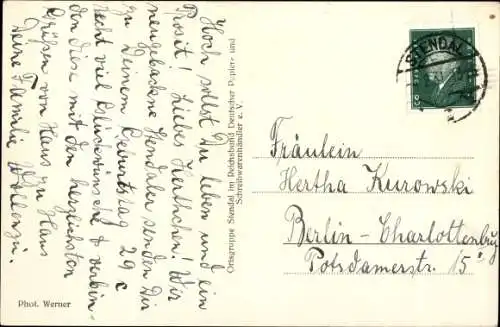 Hoch sollst Du leben und ein
Prosit! Liebes Herthchen! Wir
neugebackene Stendaler senden Dir
zu Deinem Geburtstag 29 c
recht viel Glückwünsche & verbin-
den diese mit den herzlichsten
Grüßen von Haus zu Haus
Deine Familie
Ortsgruppe Stendal im Reichsbund Deutscher Papier- und
Schreibwarenhändler e. V.
Phot. Werner
STENDAL
Fräulein
Hertha Kurowski
Berlin-Charlottenburg
Potsdamerstr. 15